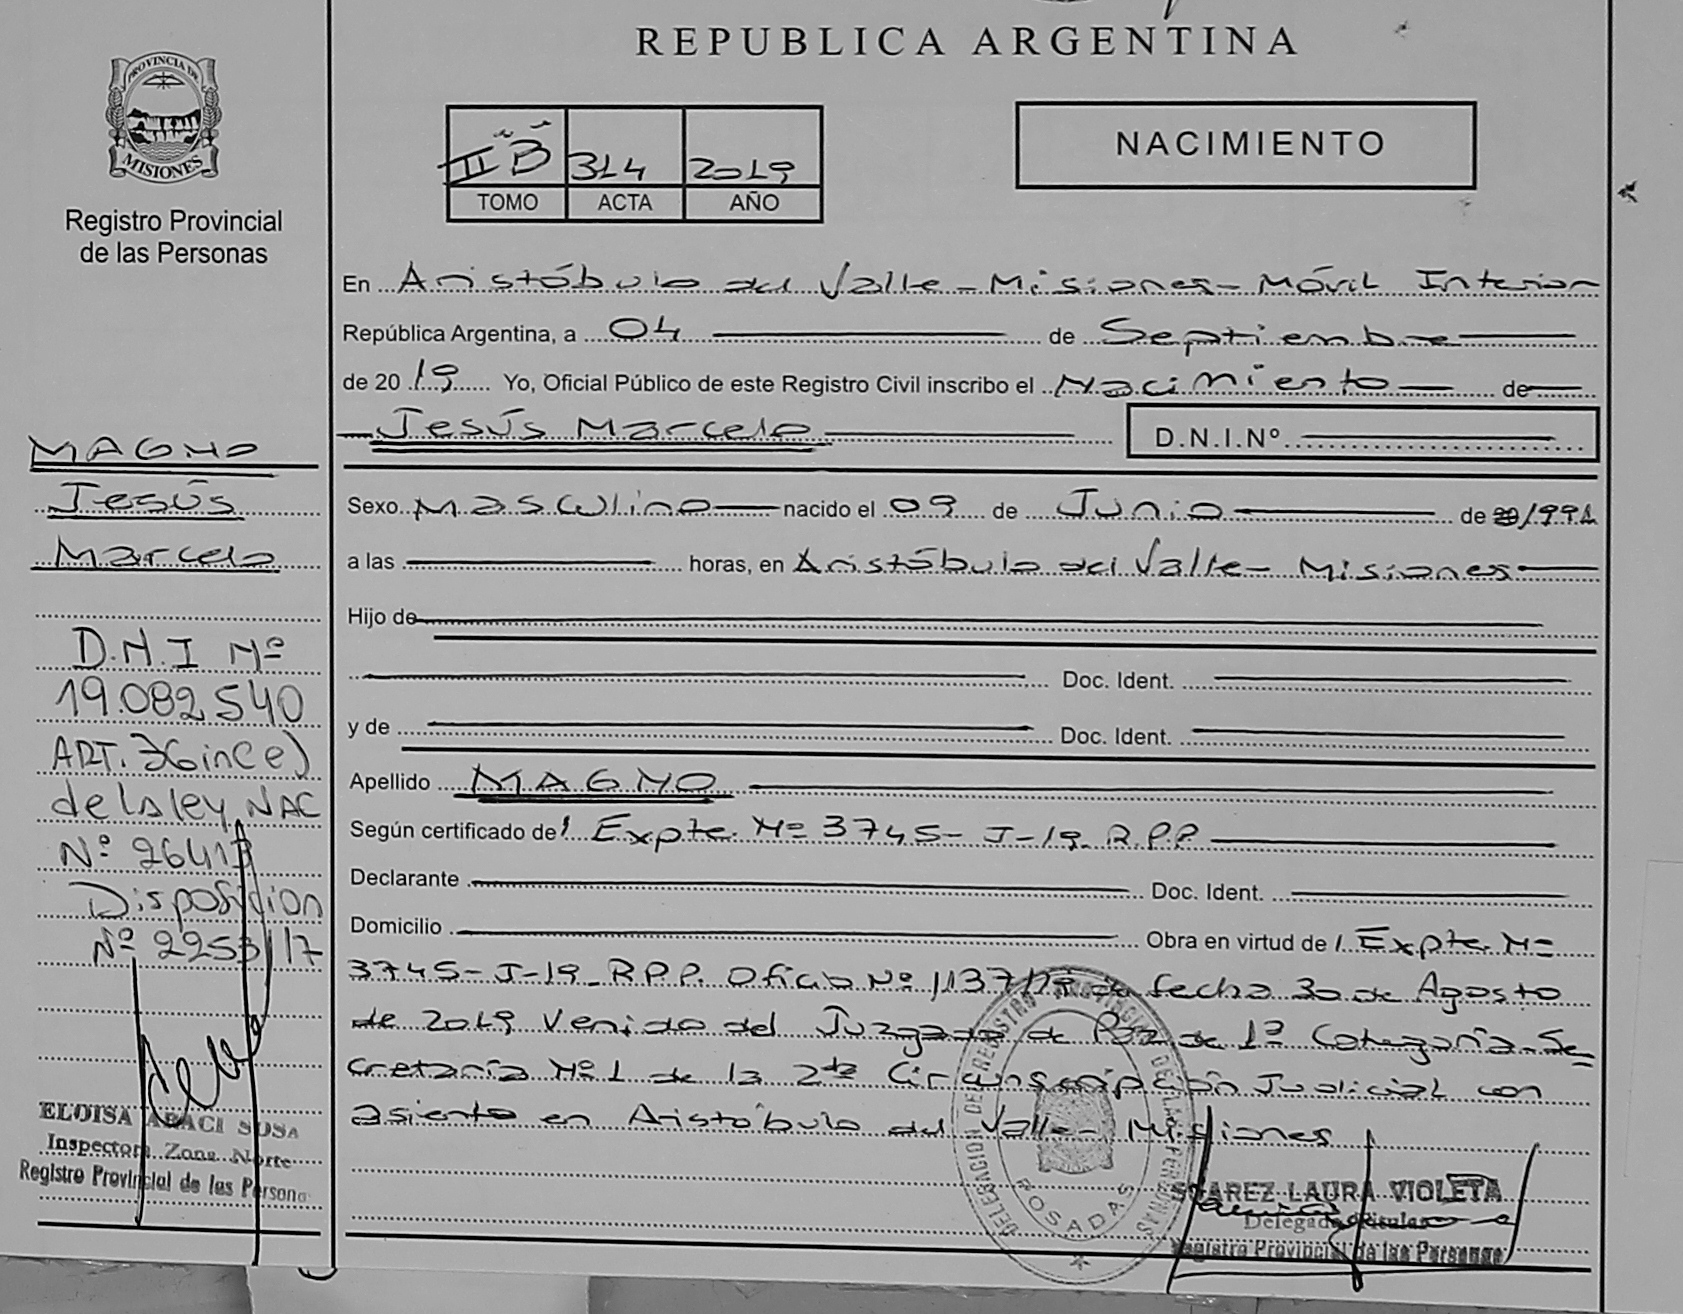 REPUBLICA ARGENTINA
PROVINCIA DE
MISIONES
Registro Provincial
de las Personas
II B 314 2019
TOMO ACTA AÑO
NACIMIENTO
En Aristóbulo del Valle - Misiones - Móvil Interior
República Argentina, a 04 de Septiembre
de 2019 Yo, Oficial Público de este Registro Civil inscribo el Nacimiento de
Jesús Marcelo D.N.I.Nº
Sexo Masculino nacido el 09 de Junio de 1991
a las horas, en Aristóbulo del Valle - Misiones
Hijo de
Doc. Ident.
y de Doc. Ident.
Apellido MAGNO
Según certificado de Expte. Nº 3745-J-19_R.P.P
Declarante Doc. Ident.
Domicilio Obra en virtud de Expte. Nº
3745-J-19_R.P.P. Oficio Nº 1137/19 de fecha 30 de Agosto
de 2019 Venido del Juzgado de Paz de 1ª Categoría-Se
cretaría Nº1 de la 2da Circunscripción Judicial con
asiento en Aristóbulo del Valle - Misiones
MAGNO
Jesús
Marcelo
D.N.I Nº
19.082.540
ART. 36 inc e)
de la ley NAC
Nº 26413
Disposicion
Nº 2253/17
ELOISA ABACI SOSA
Inspectora Zona Norte
Registro Provincial de las Persona
DELEGACION DE REGISTRO PROVINCIAL DE LAS PERSONAS
POSADAS
SUAREZ LAURA VIOLETA
Delegada Titular
Registro Provincial de las Personas